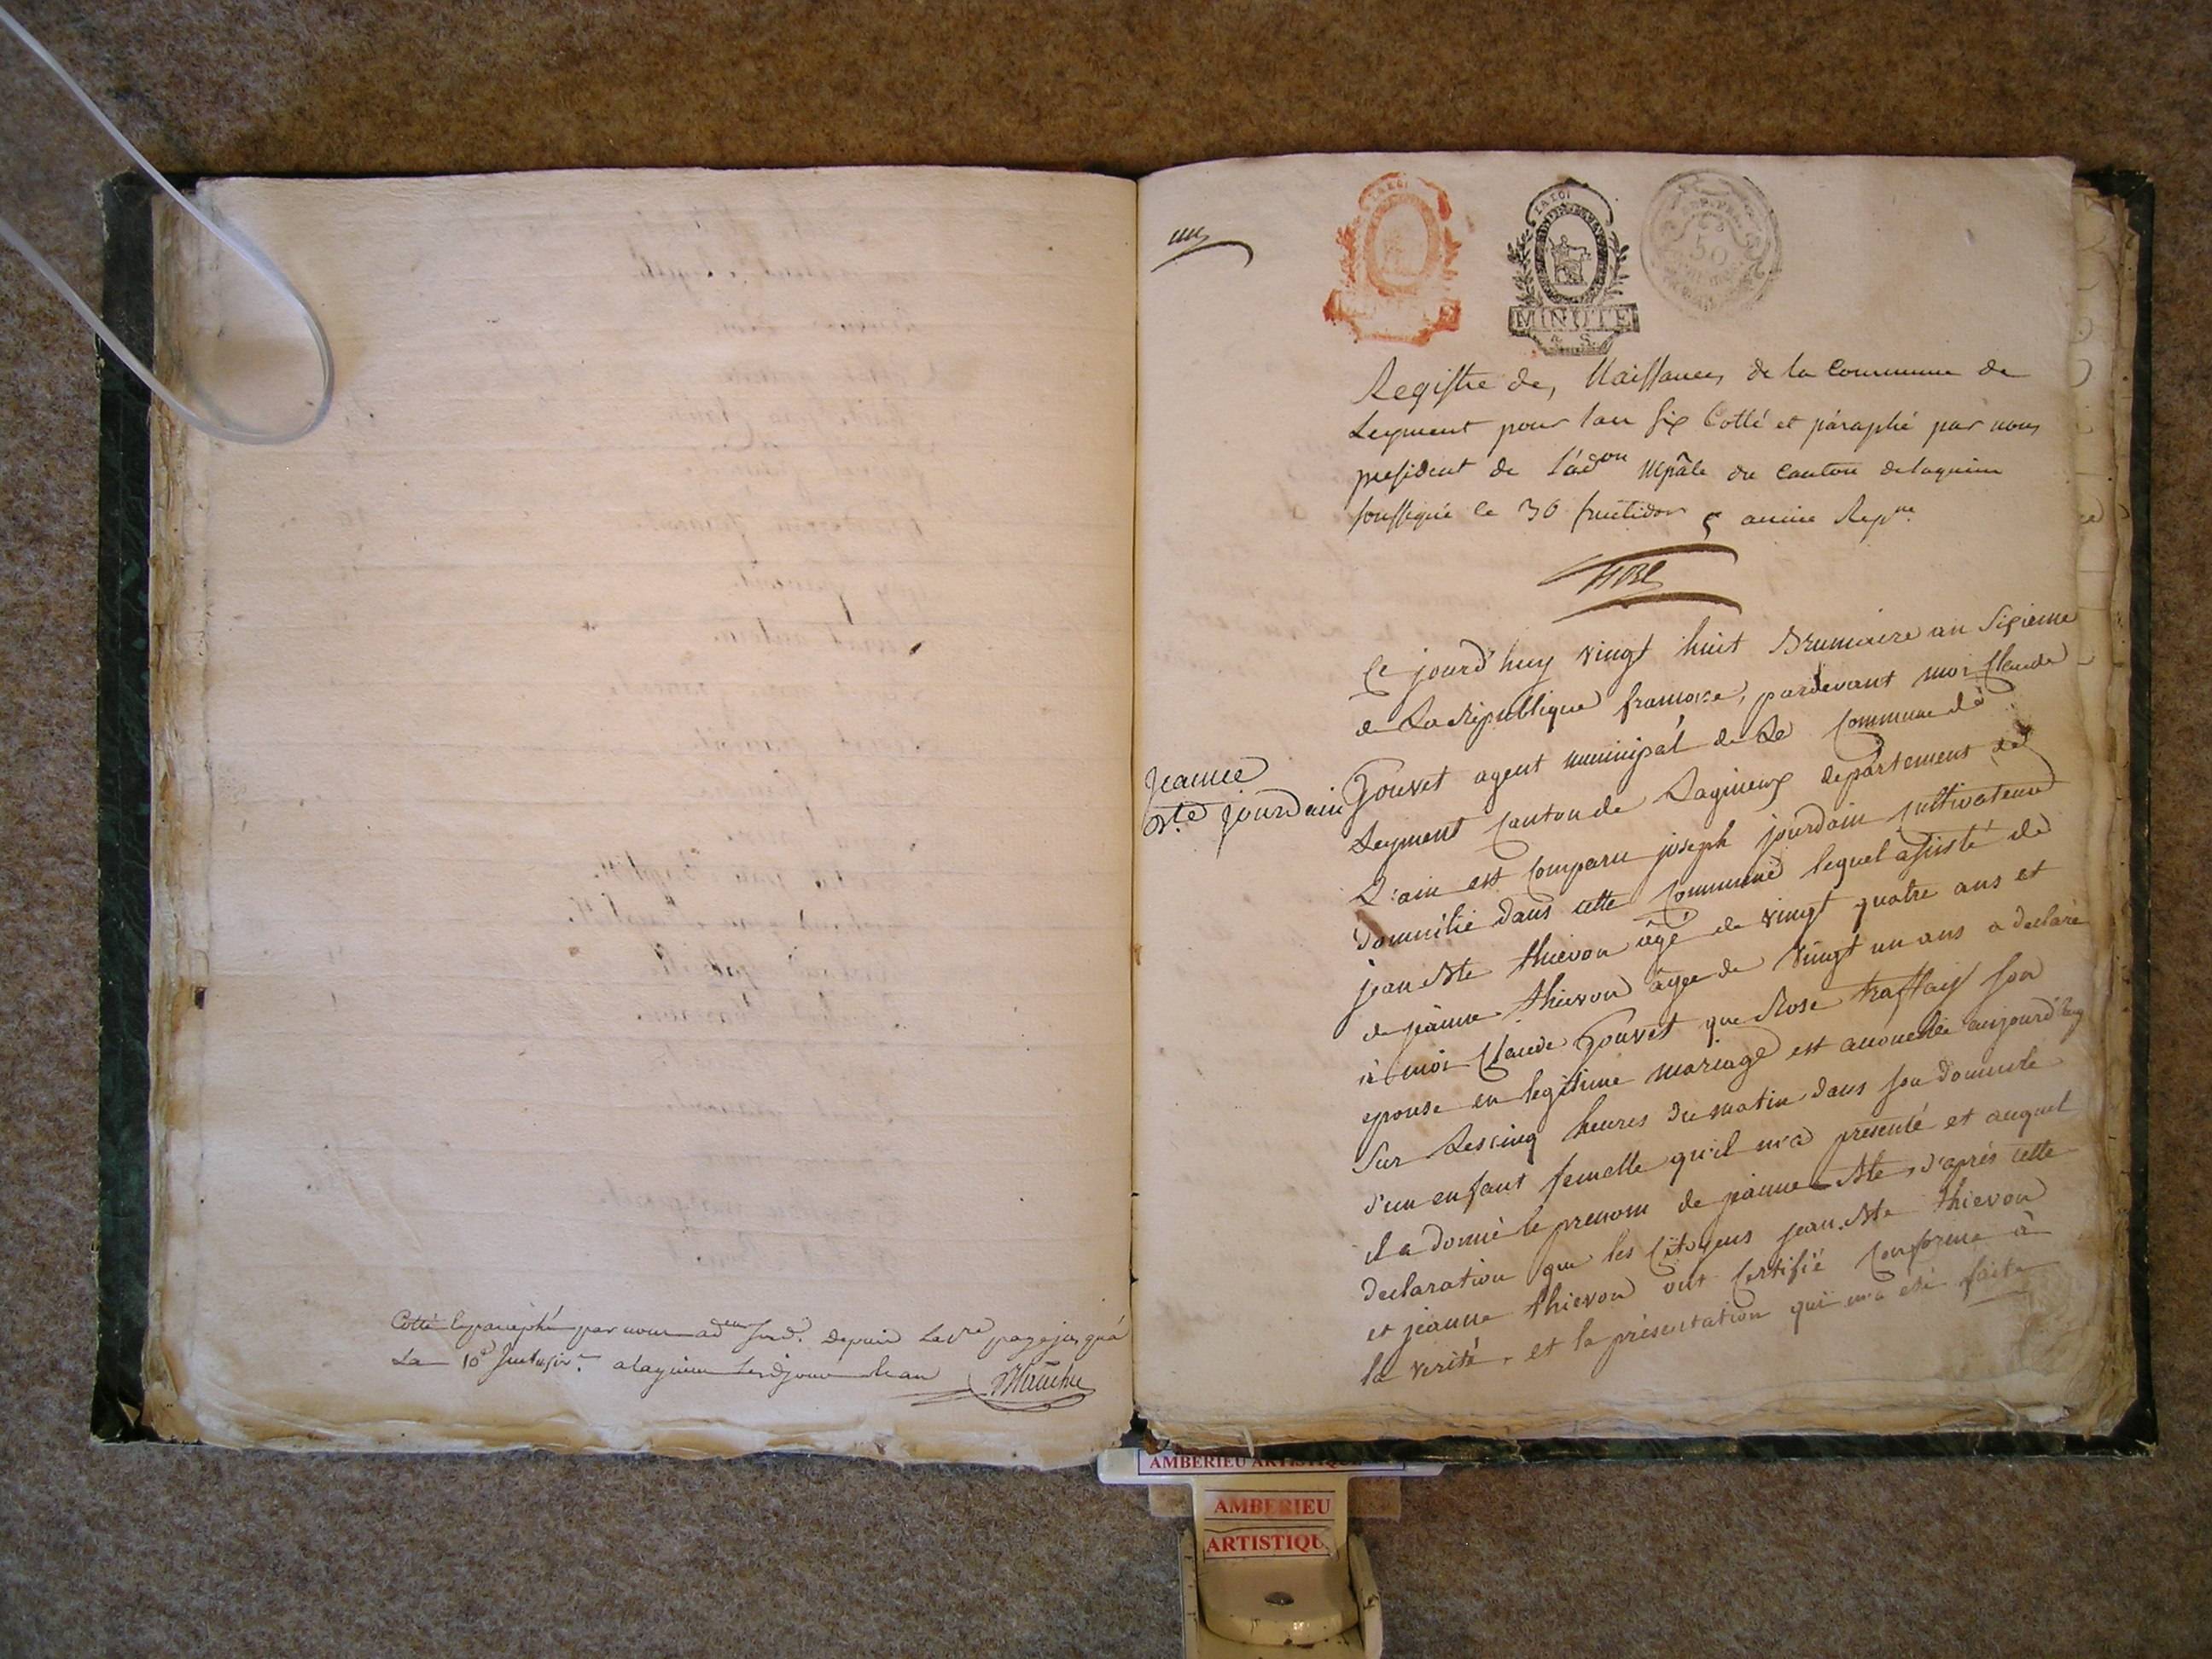 Cotté & paraphé par nous adeur Depuis La 1re page jusqu'à
La 10e a lagnieu
un
LA LOI
MINUTE
50
Registre de, Naissances de la Commune de
Leyment pour l'an Six Cotté et páraphé par nous
president de L'adon Mpâle du Canton de lagnieu
soussigné le 30 fructidor 5 année Repne.
Ce jourd'huy vingt huit Brumaire an Sixieme
de La République francoise, pardevant moi Claude
Jeanne
Bte jourdain
Gouvet agent municipal de La Commune de
Leyment Canton de Lagnieux departement de
L'ain est Comparu joseph jourdain Cultivateur
domicilié dans cette Commune lequel assisté de
jean Bte thievon âgé de vingt quatre ans et
de jeanne thievon âgee de vingt un ans a declaré
à moi Claude Gouvet que Rose traffay son
epouse en legitime mariage est acouchée aujourd'huy
Sur Les cinq heures du matin dans son domicile
d'un enfant femelle qu'il m'a presenté et auquel
il a donné le prenom de jeanne Bte, d'aprés cette
declaration que les Citoyens jean Bte thievon
et jeanne thievon ont Certifié Conforme à
la verité, et la présentation qui m'a eté faite
AMBERIEU ARTISTIQUE
AMBERIEU
ARTISTIQU